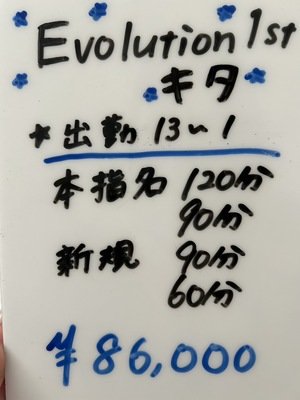 Evolution 1st
キタ
*出勤 13~1
本指名 120分
90分
新規 90分
60分
¥86,000